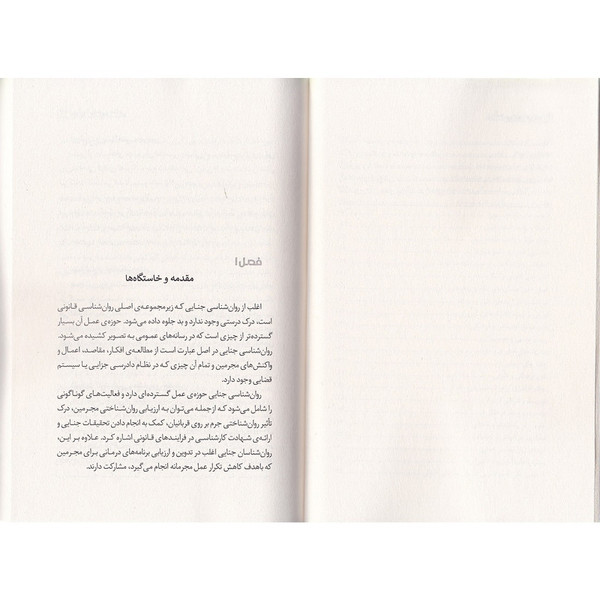 فصل ۱
مقدمه و خاستگاه‌ها
اغلب از روان‌شناسی جنایی که زیرمجموعه‌ی اصلی روان‌شناسی قانونی
است، درک درستی وجود ندارد و بد جلوه داده می‌شود. حوزه‌ی عمل آن بسیار
گسترده‌تر از چیزی است که در رسانه‌های عمومی به تصویر کشیده می‌شود.
روان‌شناسی جنایی در اصل عبارت است از مطالعه‌ی افکار، مقاصد، اعمال و
واکنش‌های مجرمین و تمام آن چیزی که در نظام دادرسی جزایی یا سیستم
قضایی وجود دارد.
روان‌شناسی جنایی حوزه‌ی عمل گسترده‌ای دارد و فعالیت‌های گوناگونی
را شامل می‌شود که ازجمله می‌توان به ارزیابی روان‌شناختی مجرمین، درک
تأثیر روان‌شناختی جرم بر روی قربانیان، کمک به انجام دادن تحقیقات جنایی و
ارائه‌ی شهادت کارشناسی در فرایندهای قانونی اشاره کرد. علاوه بر این،
روان‌شناسان جنایی اغلب در تدوین و ارزیابی برنامه‌های درمانی برای مجرمین
که باهدف کاهش تکرار عمل مجرمانه انجام می‌گیرد، مشارکت دارند.